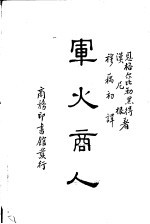 恩格尔比勒黑得
漢尼根 著
穆藕初譯
軍火商人
商務印書館發行